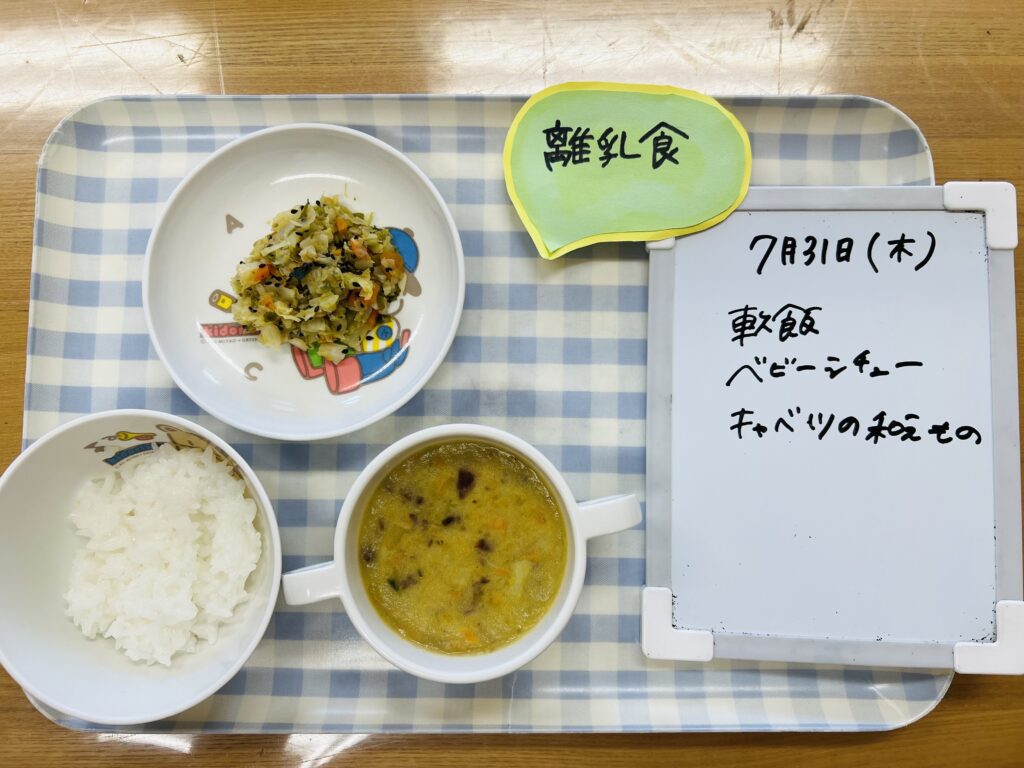 離乳食
7月31日(木)
軟飯
ベビーシチュー
キャベツの和えもの
A
C